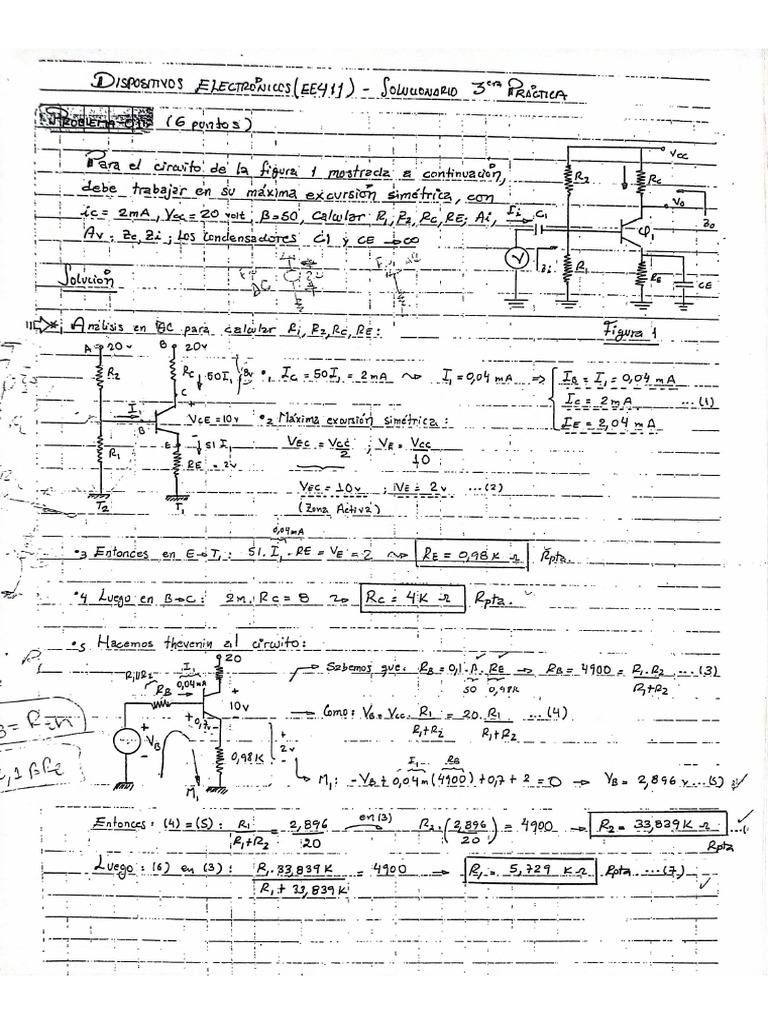 DISPOSITIVOS ELECTRÓNICOS (EE411) - SOLUCIONARIO 3era PRÁCTICA
PROBLEMA 01 (6 puntos)
Para el circuito de la figura 1 mostrada a continuación,
debe trabajar en su máxima excursión simétrica, con
ic = 2mA, Vcc = 20 volt, β=50, calcular R1, R2, RC, RE; Ai,
Av; Zo, Zi; Los condensadores C1 y CE → ∞
Vcc
R2
RC
Vo
Ii
C1
Q1
Zo
V
Zi
R1
RE
CE
Figura 1
Solución
Análisis en DC para calcular R1, R2, RC, RE:
A 20v
B 20v
R2
RC
50I1
8v
C
I1
B
VCE=10v
E
51 I1
R1
RE = 2v
T2
T1
•1 IC = 50I1 = 2mA ⇝ I1 = 0,04mA ⇒ { IB = I1 = 0,04 mA
IC = 2mA ... (1)
IE = 2,04 mA
•2 Máxima excursión simétrica:
VEC = Vcc/2 ; VE = Vcc/10
VEC = 10v ; VE = 2v ... (2)
(Zona Activa)
0,04mA
•3 Entonces en E→T1: 51. I1 . RE = VE = 2 ⇝ RE = 0,98K Ω Rpta.
•4 Luego en B→C: 2m. RC = 8 ⇝ RC = 4K Ω Rpta.
•5 Hacemos thevenin al circuito:
20
R1//R2
RB
I1
0,04mA
10v
+0,7v-
VB
0,98K
2v
M1
→ Sabemos que: RB = 0,1 . β . RE → RB = 4900 = R1.R2/(R1+R2) ... (3)
50 0,98K
→ Como: VB = Vcc. R1/(R1+R2) = 20. R1/(R1+R2) ... (4)
I1 RB
→ M1: -VB + 0,04m (4900) + 0,7 + 2 = 0 → VB = 2,896 v ... (5)
Entonces: (4) = (5): R1/(R1+R2) = 2,896/20 en (3) → R2.(2,896/20) = 4900 → R2 = 33,839 K Ω
Rpta
Luego: (6) en (3): R1.33,839K/(R1 + 33,839K) = 4900 → R1 = 5,729 KΩ Rpta ... (7)